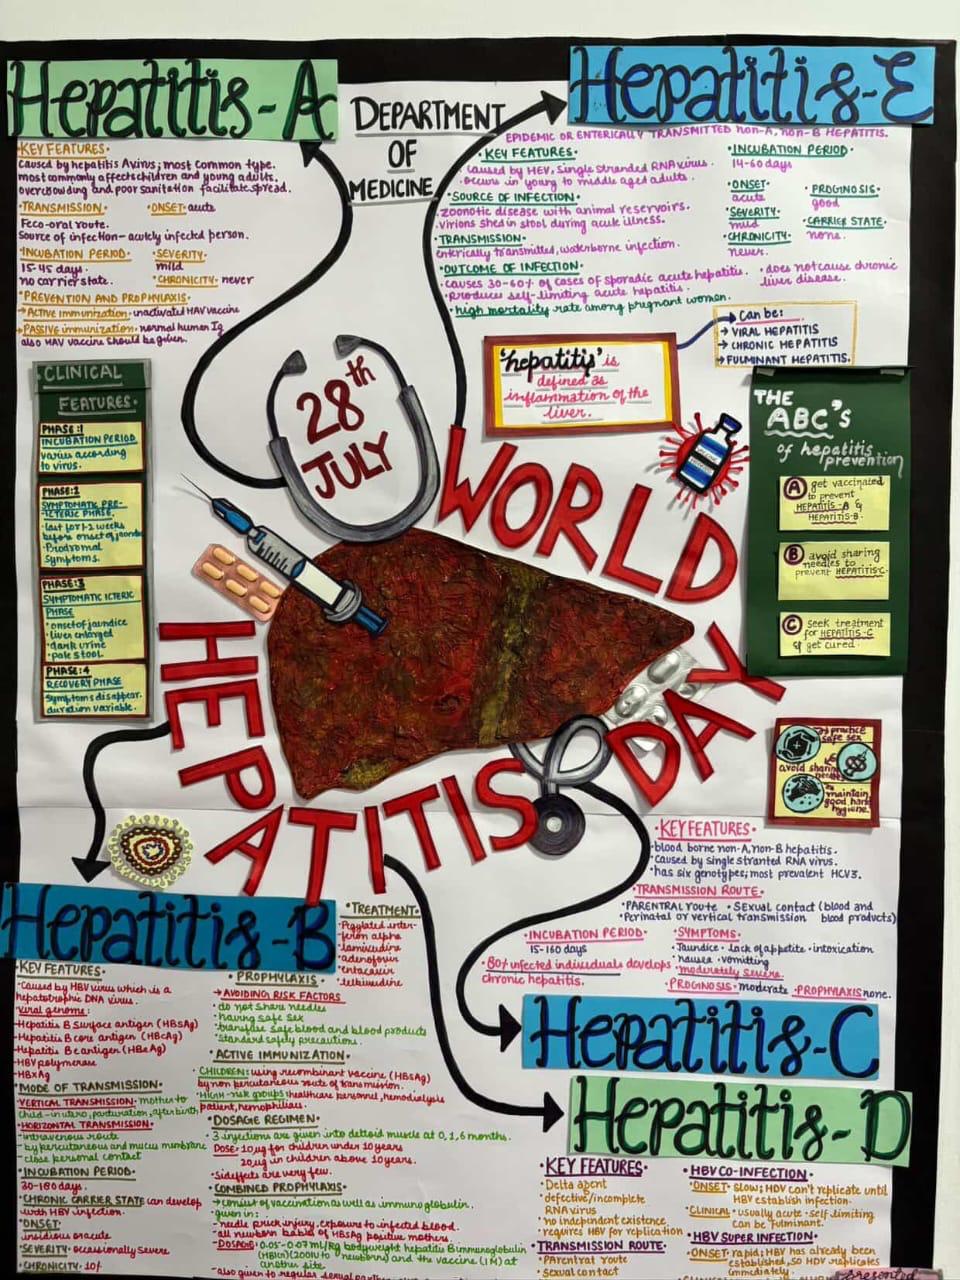 Hepatitis-A
KEY FEATURES•
caused by hepatitis A virus; most common type.
most commonly affects children and young adults.
overcrowding and poor sanitation facilitate spread.
•TRANSMISSION• •ONSET: acute
Feco-oral route.
Source of infection— acutely infected person.
•INCUBATION PERIOD•
15-45 days.
no carrier state.
•SEVERITY•
mild
•CHRONICITY• never
•PREVENTION AND PROPHYLAXIS•
→Active immunization• inactivated HAV vaccine
→PASSIVE immunization• normal human Ig
also HAV vaccine should be given.
DEPARTMENT
OF
MEDICINE
Hepatitis-E
EPIDEMIC OR ENTERICALLY TRANSMITTED non-A, non-B HEPATITIS.
•KEY FEATURES:
caused by HEV, single stranded RNA virus.
occurs in young to middle aged adults.
•SOURCE OF INFECTION•
zoonotic disease with animal reservoirs.
virions shed in stool during acute illness.
•TRANSMISSION•
enterically transmitted, waterborne infection.
•OUTCOME OF INFECTION•
•causes 30-60% of cases of sporadic acute hepatitis.
•Produces self-limiting acute hepatitis.
•high mortality rate among pregnant women.
•INCUBATION PERIOD•
14-60 days
•ONSET•
acute
•SEVERITY•
mild
•CHRONICITY•
never.
•PROGINOSIS•
good
•CARRIER STATE•
none.
•does not cause chronic
liver disease.
'hepatitis' is
defined as
inflammation of the
liver.
can be:
→ VIRAL HEPATITIS
→ CHRONIC HEPATITIS
→ FULMINANT HEPATITIS.
CLINICAL
FEATURES•
PHASE:1
INCUBATION PERIOD
varies according
to virus.
PHASE:2
SYMPTOMATIC PRE-
ICTERIC PHASE.
before onset of jaundice
•Prodromal
symptoms.
PHASE:3
SYMPTOMATIC ICTERIC
PHASE
•onset of jaundice
•liver enlarged
•dark urine
•pale stool.
PHASE:4
RECOVERY PHASE
symptoms disappear.
duration variable.
28th
JULY
WORLD
HEPATITIS DAY
THE
ABC's
of hepatitis
prevention
A get vaccinated
to prevent
HEPATITIS-A &
HEPATITIS-B.
B avoid sharing
needles to
prevent HEPATITIS-C.
C seek treatment
for HEPATITIS-C
& get cured.
practice
safe sex
avoid sharing
needles
maintain
good hand
hygiene.
•KEY FEATURES•
•blood borne non-A, non-B hepatitis.
•Caused by single stranted RNA virus.
•has six genotypes; most prevalent HCV3.
•TRANSMISSION ROUTE•
•PARENTRAL route •Sexual contact (blood and
•Perinatal or vertical transmission blood products)
•INCUBATION PERIOD•
15-160 days
•80% infected individuals develops
chronic hepatitis.
•SYMPTOMS•
•Jaundice •Lack of appetite •intoxication
•nausea •vomitting
•moderately severe.
•PROGINOSIS• moderate •PROPHYLAXIS none.
Hepatitis-C
Hepatitis-B
•KEY FEATURES•
•Caused by HBV virus which is a
hepatotrophic DNA virus.
viral genome:
-Hepatitis B Surface antigen (HBsAg)
-Hepatitis B core antigen (HBcAg)
-Hepatitis B e antigen (HBeAg)
-HBV polymerase
-HBxAg
•MODE OF TRANSMISSION•
VERTICAL TRANSMISSION• mother to
child-in utero, parturation, after birth,
•HORIZONTAL TRANSMISSION•
-intravenous route
-by percutaneous and mucus membrane
-close personal contact
•INCUBATION PERIOD•
30-180 days.
CHRONIC CARRIER STATE can develop
with HBV infection.
•ONSET•
insidious or acute
•SEVERITY• occasionally severe
•CHRONICITY: 10%
•TREATMENT•
•Pegylated inter-
feron alpha
•lamivudine
•adenofovir
•entacavir
•telbivudine
•PROPHYLAXIS
→AVOIDING RISK FACTORS
•do not share needles
•having safe sex
•transfuse safe blood and blood products
•standard safety precautions.
•ACTIVE IMMUNIZATION•
CHILDREN: using recombinant vaccine (HBsAg)
by non percutaneous route of transmission.
-HIGH-risk groups: healthcare personnel, hemodialysis
patient, hemophiliacs.
•DOSAGE REGIMEN•
•3 injections are given into deltoid muscle at 0,1,6 months.
DOSE: 10μg for children under 10 years
20μg in children above 10 years.
•sideffects are very few.
•COMBINED PROPHYLAXIS•
→consist of vaccination as well as immunoglobulin.
→given in:
-needle prick injury, exposure to infected blood.
-all newborn babies of HBsAg positive mothers.
-DOSAGE: 0.05-0.07ml/kg bodyweight hepatitis B immunoglobulin
and the vaccine (IM) at
another site.
-also given to regular sexual
Hepatitis-D
•KEY FEATURES•
•Delta agent
•defective/incomplete
RNA virus
•no independent existence,
requires HBV for replication
•TRANSMISSION ROUTE•
•Parentral route
•Sexual contact
•HBV CO-INFECTION•
•ONSET• SLOW; HDV can't replicate until
HBV establish infection.
•CLINICAL• usually acute •self limiting
can be fulminant.
•HBV SUPER INFECTION•
•ONSET: rapid; HBV has already been
established, so HDV replicates
immediately.